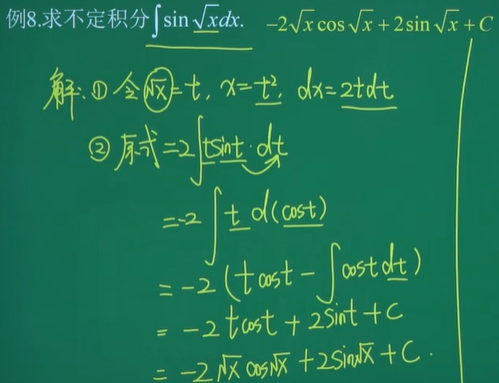 例8.求不定积分∫sin √x dx. -2√x cos √x + 2 sin √x + C
解:① 令√x=t, x=t², dx=2tdt
② 原式=2∫tsint·dt
=-2∫t d(cost)
=-2(tcost-∫costdt)
=-2tcost+2sint+C
=-2√x cos√x+2sin√x+C.